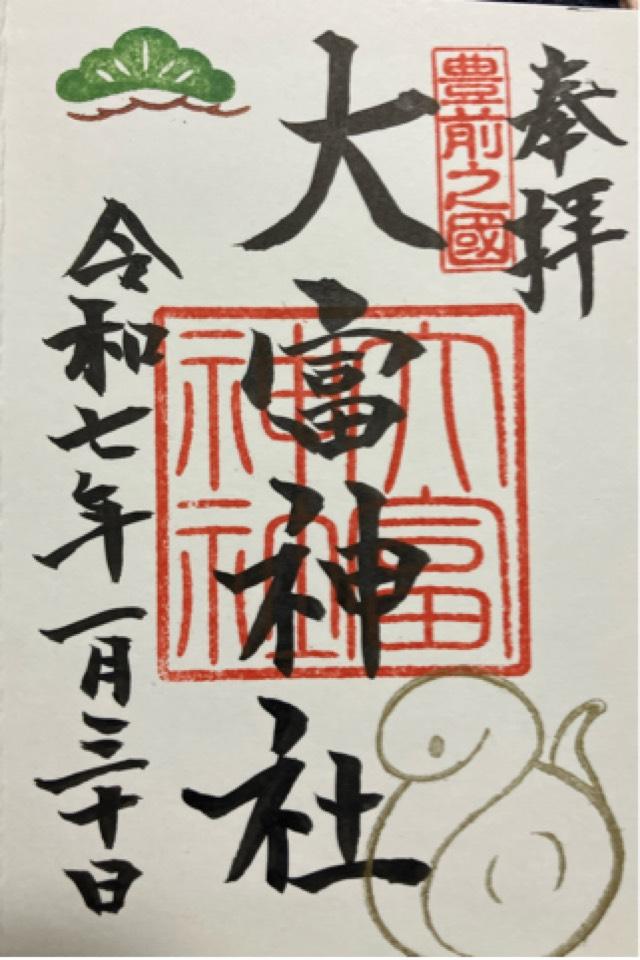 奉拝
豊前之國
大富神社
大富
神社
令和七年一月三十日